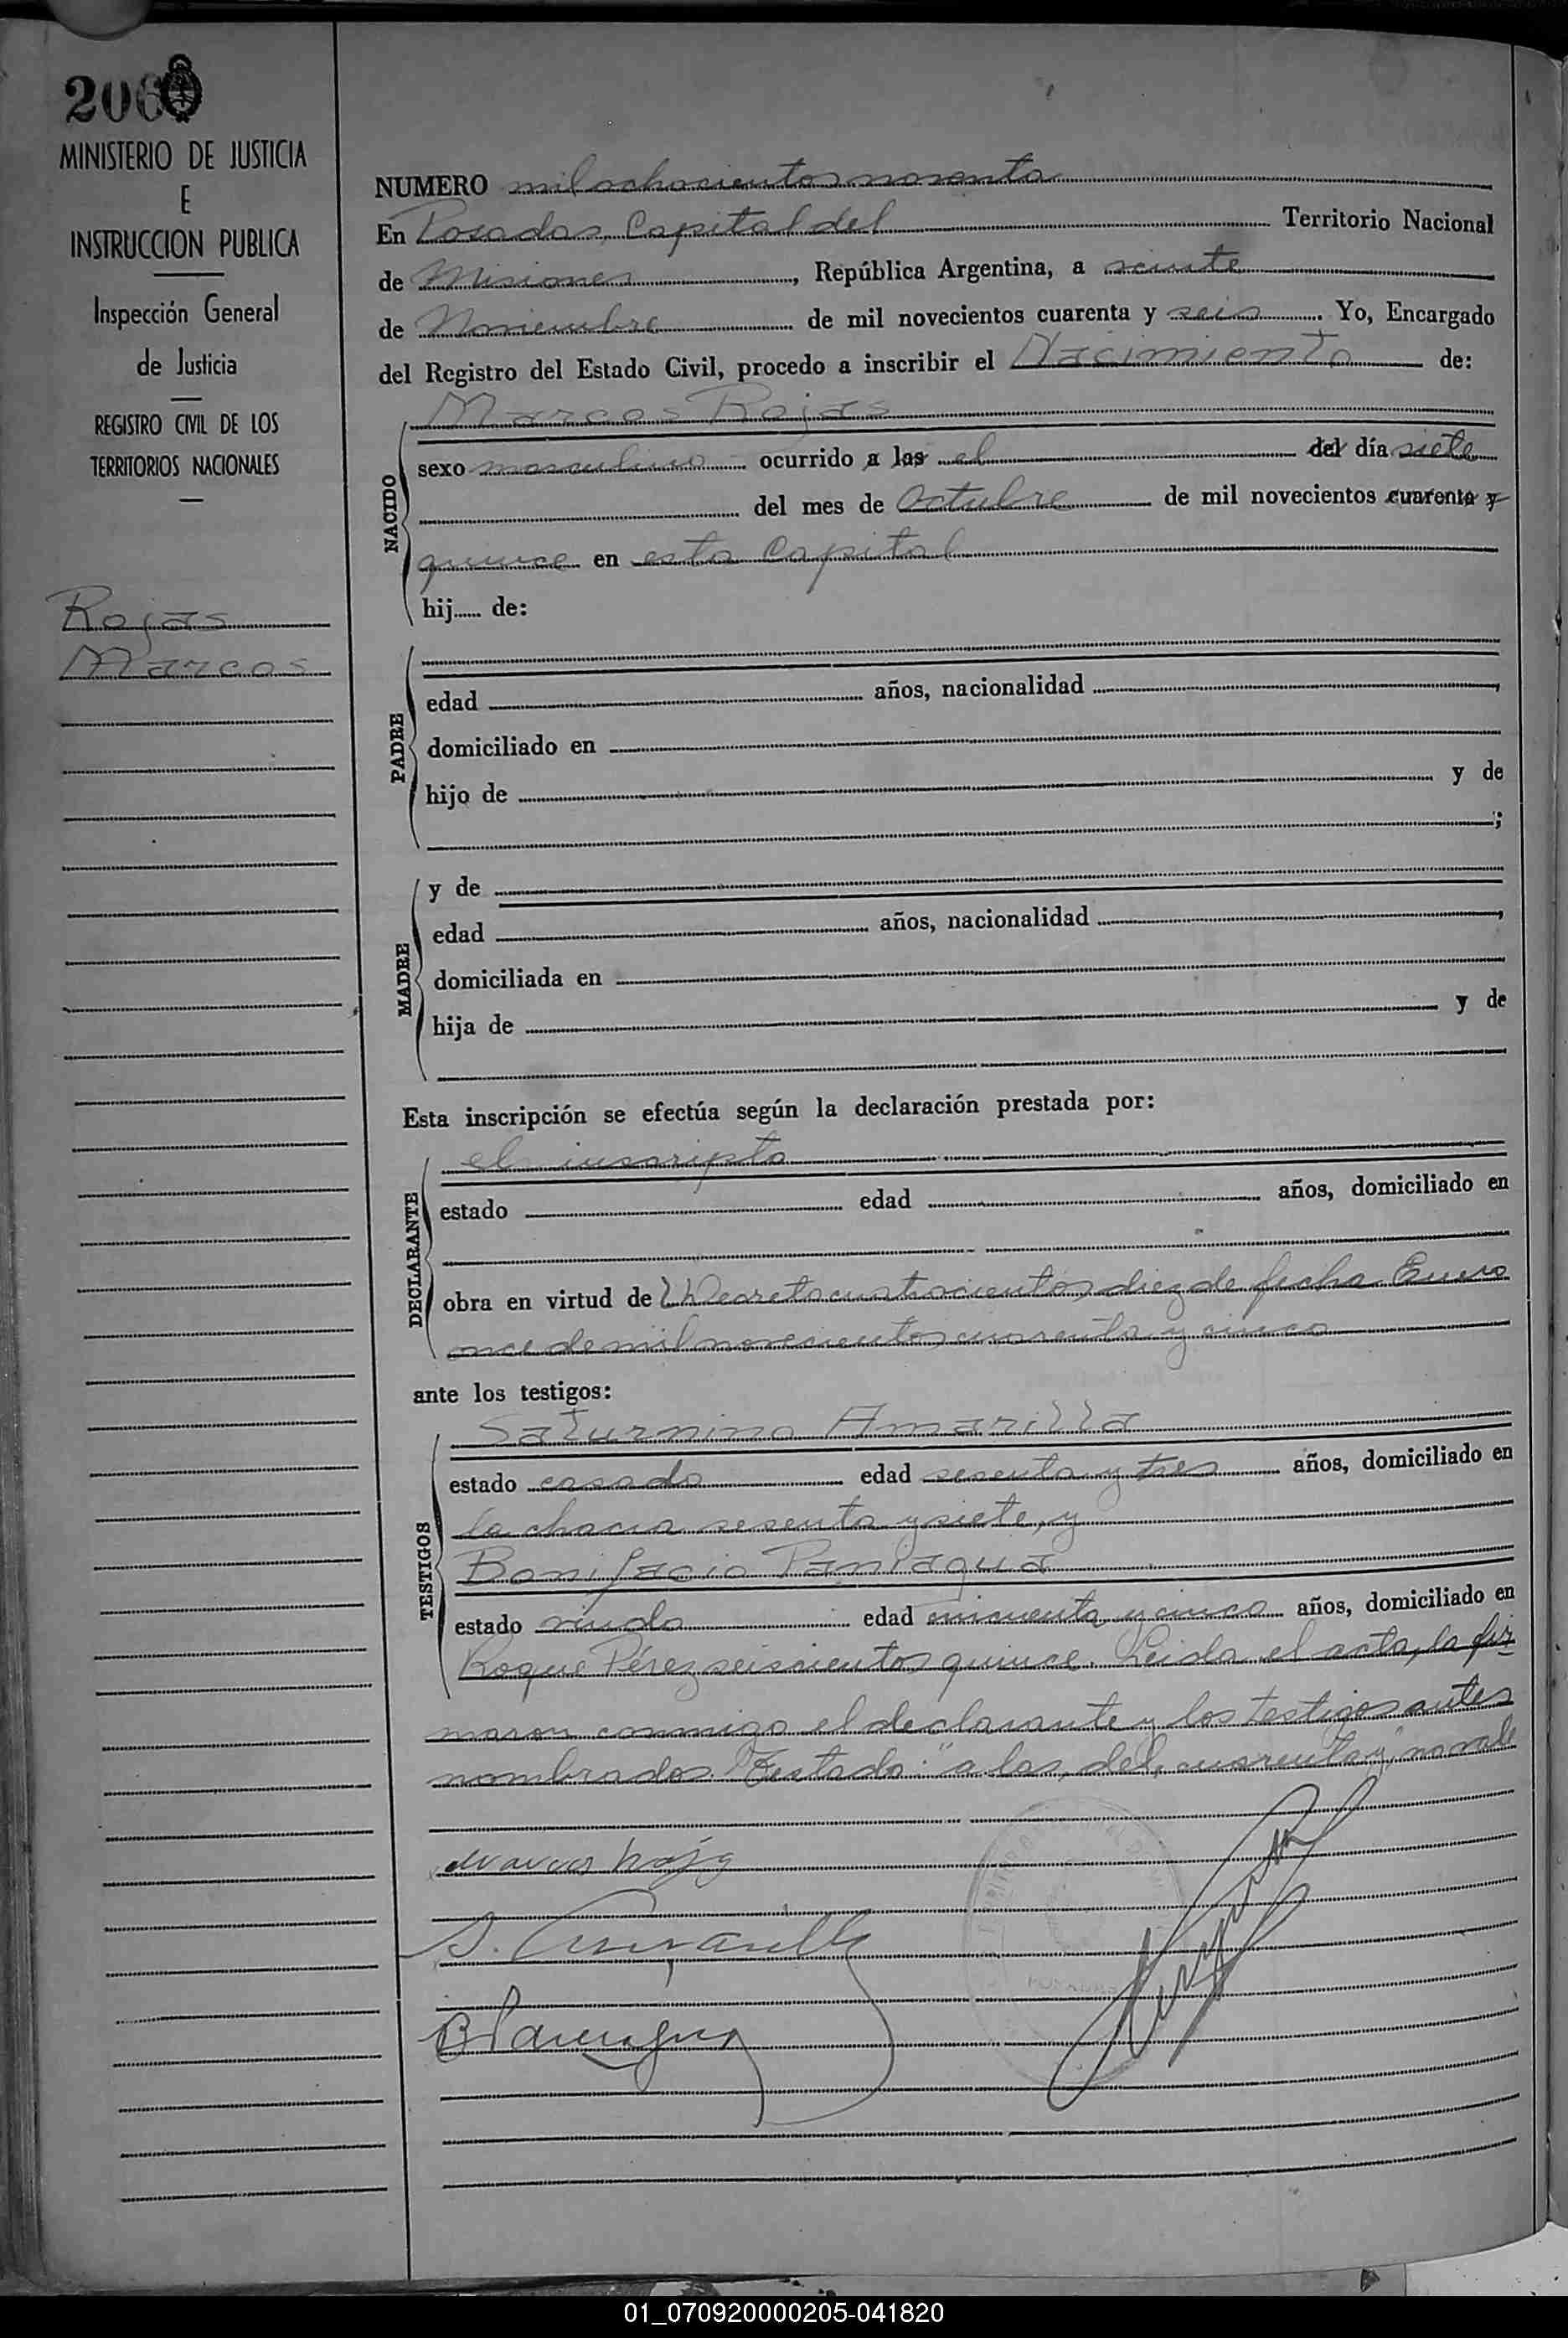 206
MINISTERIO DE JUSTICIA
E
INSTRUCCION PUBLICA
Inspección General
de Justicia
REGISTRO CIVIL DE LOS
TERRITORIOS NACIONALES
Rojas
Marcos
NUMERO mil ochocientos noventa
En Posadas, Capital del Territorio Nacional
de Misiones, República Argentina, a veinte
de Noviembre de mil novecientos cuarenta y seis. Yo, Encargado
del Registro del Estado Civil, procedo a inscribir el Nacimiento de:
Marcos Rojas
NACIDO
sexo masculino ocurrido a las el del día siete
del mes de Octubre de mil novecientos cuarenta y
quince en esta Capital
hij de:
PADRE
edad años, nacionalidad ,
domiciliado en
hijo de y de
;
MADRE
y de
edad años, nacionalidad ,
domiciliada en
hija de y de
Esta inscripción se efectúa según la declaración prestada por:
DECLARANTE
el inscripto
estado edad años, domiciliado en
obra en virtud del Decreto cuatrocientos diez de fecha Enero
once de mil novecientos cuarenta y cinco
ante los testigos:
TESTIGOS
Saturnino Amarilla
estado casado edad sesenta y tres años, domiciliado en
la chacra sesenta y siete, y
Bonifacio Paniagua
estado viudo edad cincuenta y cinco años, domiciliado en
Roque Pérez seiscientos quince. Leida el acta, la fir
maron conmigo el declarante y los testigos antes
nombrados. Testado: "a las, del, cuarenta y," no vale
Marcos Rojas
S. Amarilla
B Paniagua
01_070920000205-041820